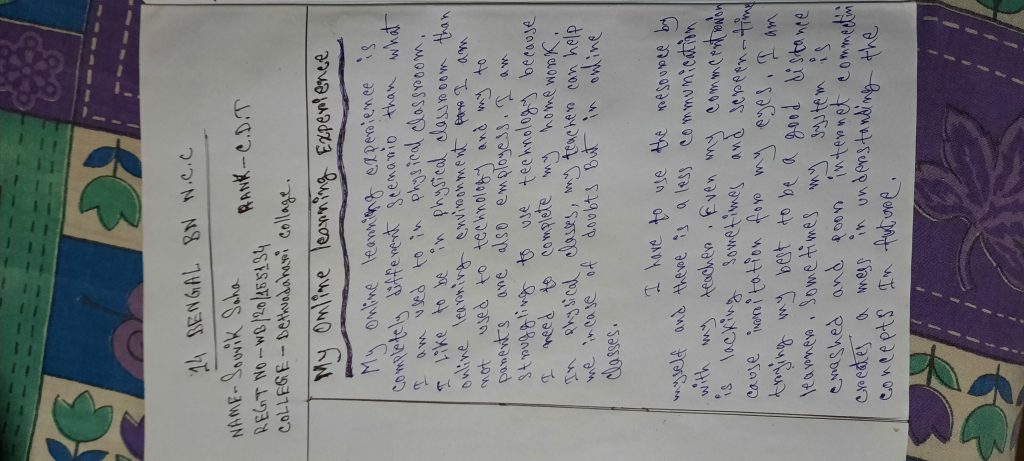 14 BENGAL BN N.C.C
NAME-Souvik Saha RANK-C.D.T
REGT NO-WB/20/
COLLEGE- Bethuadahari collage.
My Online learning Experience
My Online learning experience is
completely different scenario than what
I am used to in physical classroom.
I like to be in physical classroom than
online learning environment I am
not used to technology and my
parents are also employes. I am
struggling to use technology because
I need to complete my homework.
In physical classes, my teacher can help
me incase of doubts But in online
classes.
I have to use the resource by
myself and there is a less communication
with my teacher. Even my concentration
is lacking sometimes and screen-time
cause irritation for my eyes. I am
trying my best to be a good distance
learner. Sometimes my system is
crashed and poor internet
creates a mess in understanding the
concepts In future.